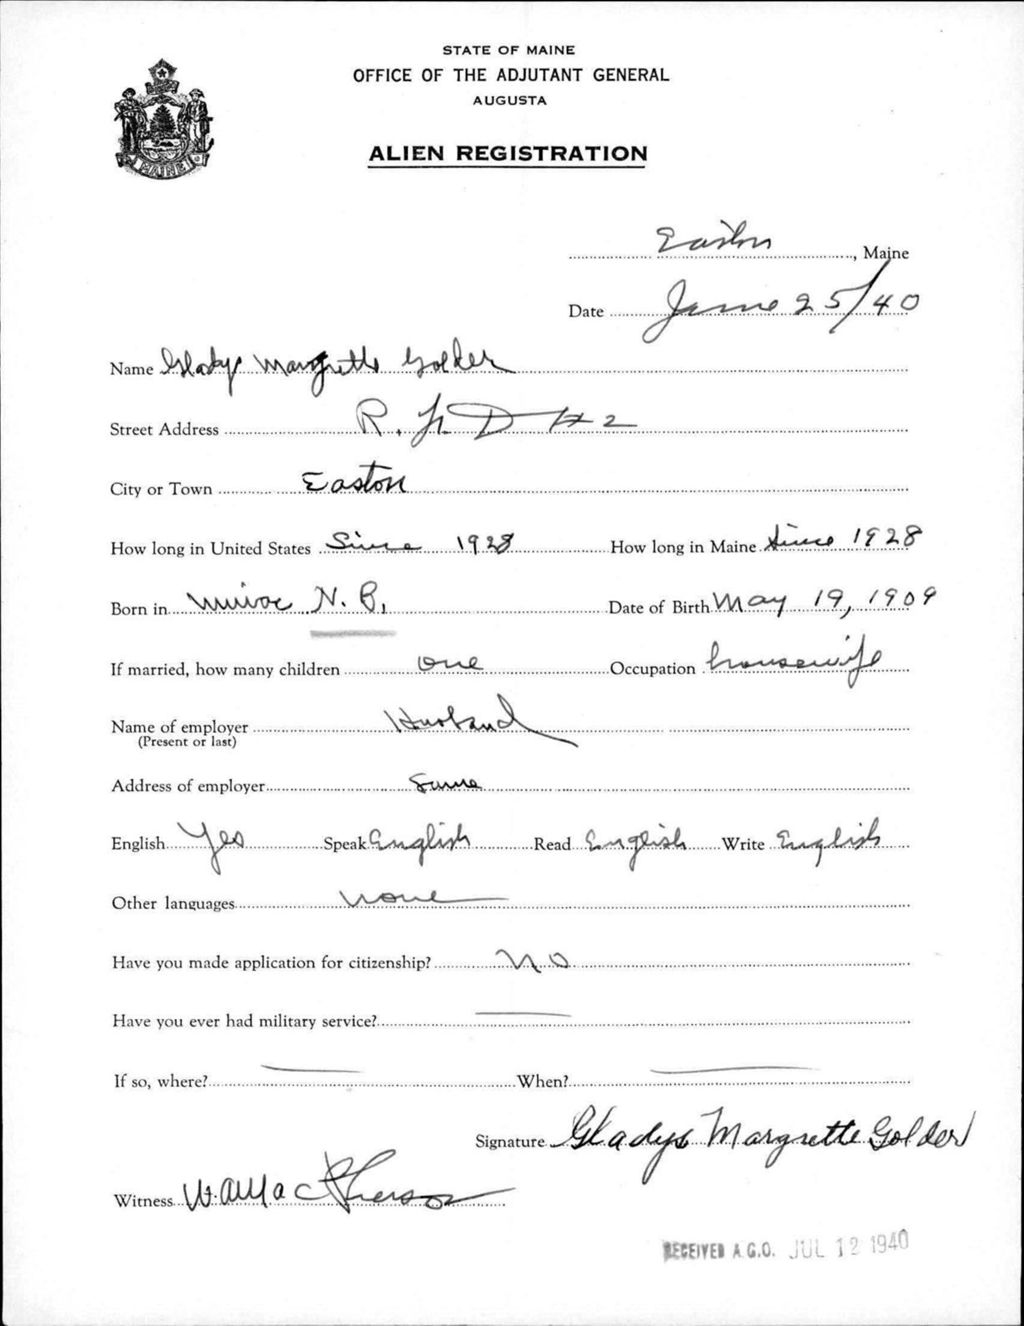 STATE OF MAINE
OFFICE OF THE ADJUTANT GENERAL
AUGUSTA
ALIEN REGISTRATION
MAINE
Easton, Maine
Date June 25/40
Name Gladys Margrette Golder
Street Address R. F. D #2
City or Town Easton
How long in United States Since 1928 How long in Maine Since 1928
Born in N. B. Date of Birth May 19, 1909
If married, how many children one Occupation housewife
Name of employer Husband
(Present or last)
Address of employer Same
English Yes Speak English Read English Write English
Other languages none
Have you made application for citizenship? No
Have you ever had military service? —
If so, where? — When? —
Signature Gladys Margrette Golder
Witness W. A. MacPherson
RECEIVED A.G.O. JUL 12 1940